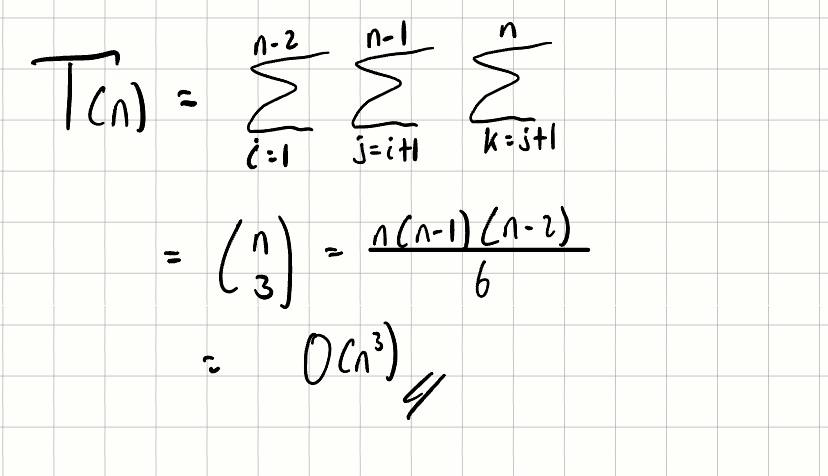 T(n) = \sum_{i=1}^{n-2} \sum_{j=i+1}^{n-1} \sum_{k=j+1}^{n}
= \binom{n}{3} = \frac{n(n-1)(n-2)}{6}
= O(n^3)